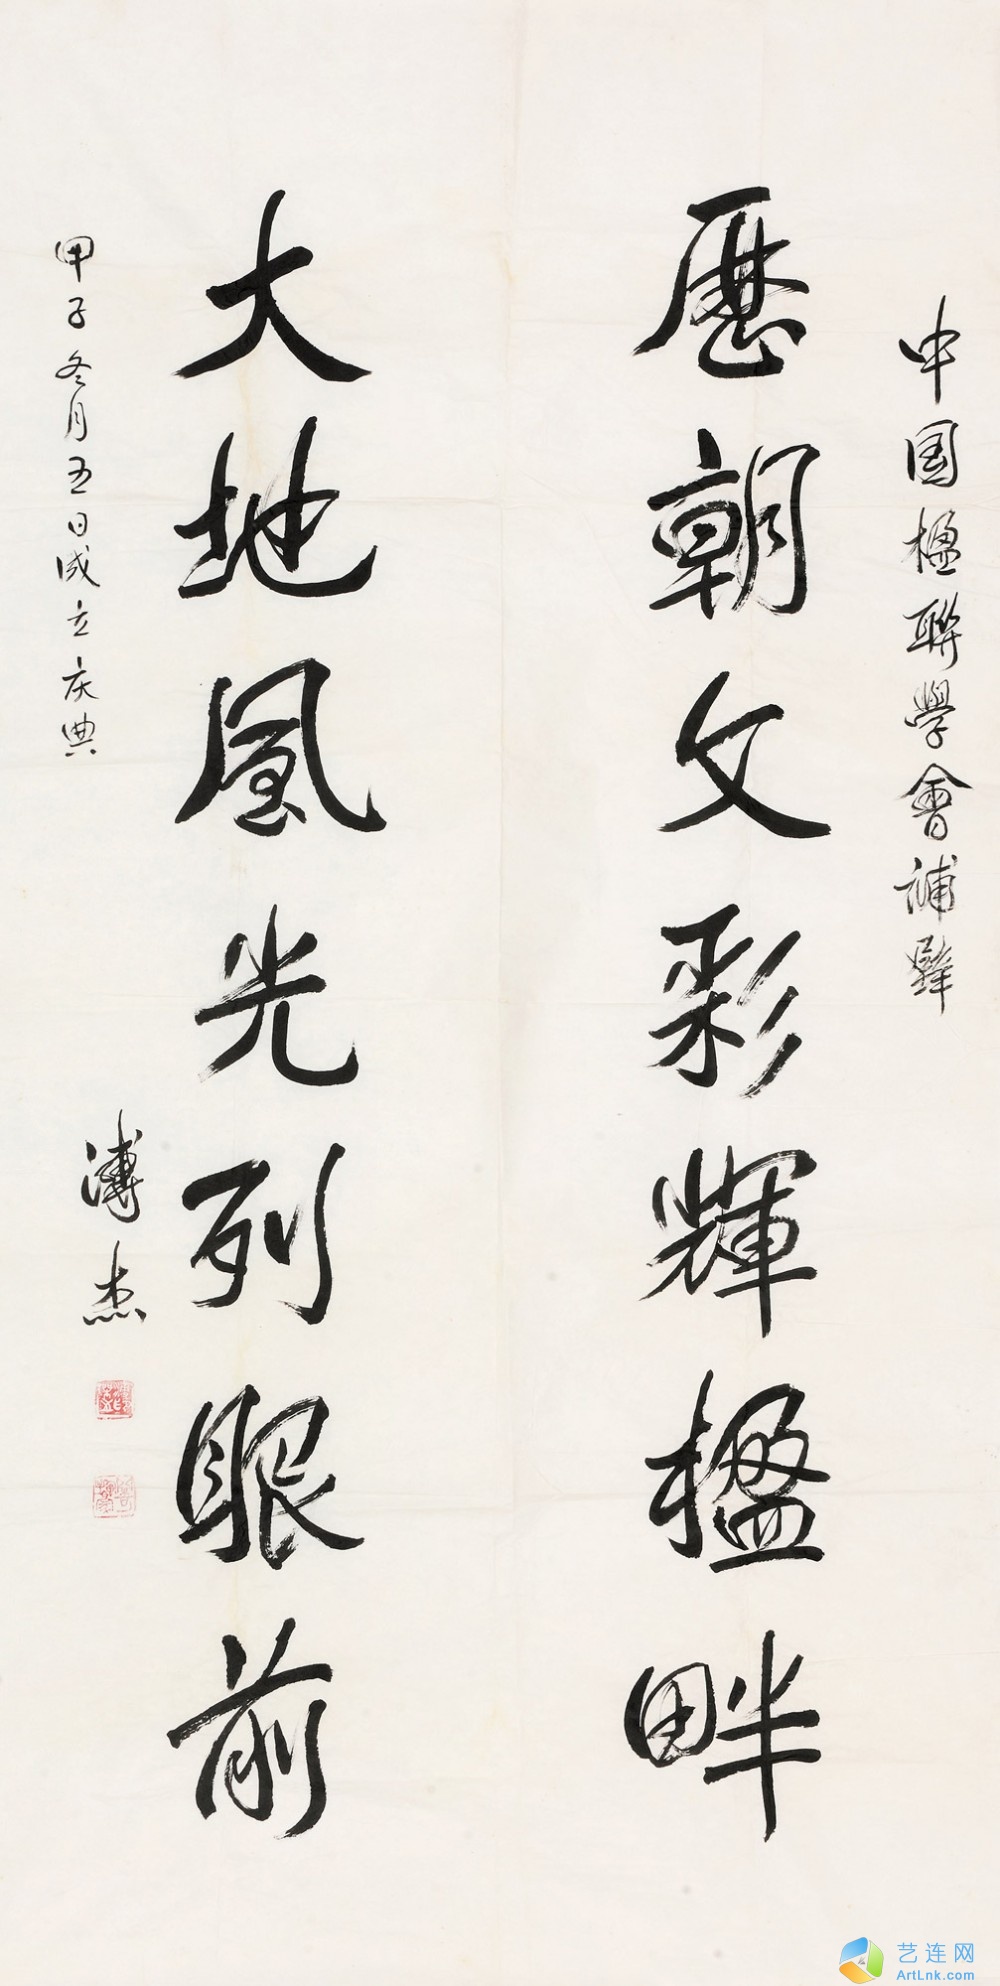 中国楹聯學會補壁
歷朝文彩輝楹畔
大地風光列眼前
甲子冬月五日成立庆典
溥杰
艺连网
ArtLnk.com